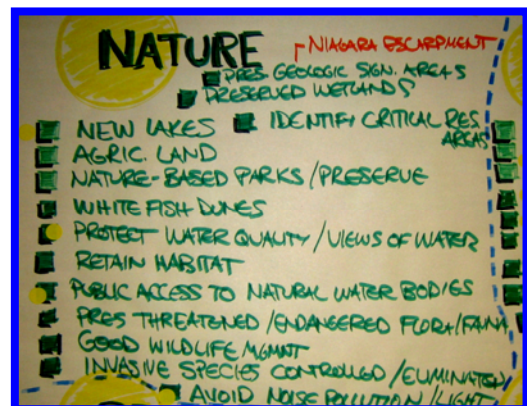 NATURE
NIAGARA ESCARPMENT
PRES GEOLOGIC SIGN. AREAS
PRESERVED WETLANDS
NEW LAKES
IDENTIFY CRITICAL RES. AREAS
AGRIC. LAND
NATURE-BASED PARKS/PRESERVE
WHITE FISH DUNES
PROTECT WATER QUALITY/VIEWS OF WATER
RETAIN HABITAT
PUBLIC ACCESS TO NATURAL WATER BODIES
PRES THREATENED/ENDANGERED FLORA/FAUNA
GOOD WILDLIFE MGMNT
INVASIVE SPECIES CONTROLLED/ELIMINATED
AVOID NOISE POLLUTION/LIGHT